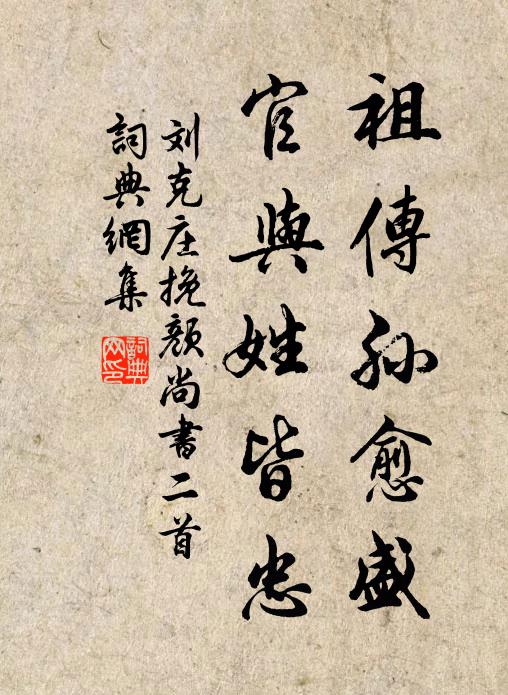 祖傳孫愈盛
官與姓皆忠
刘克庄挽颜尚書二首
詞典網集
詞典網印